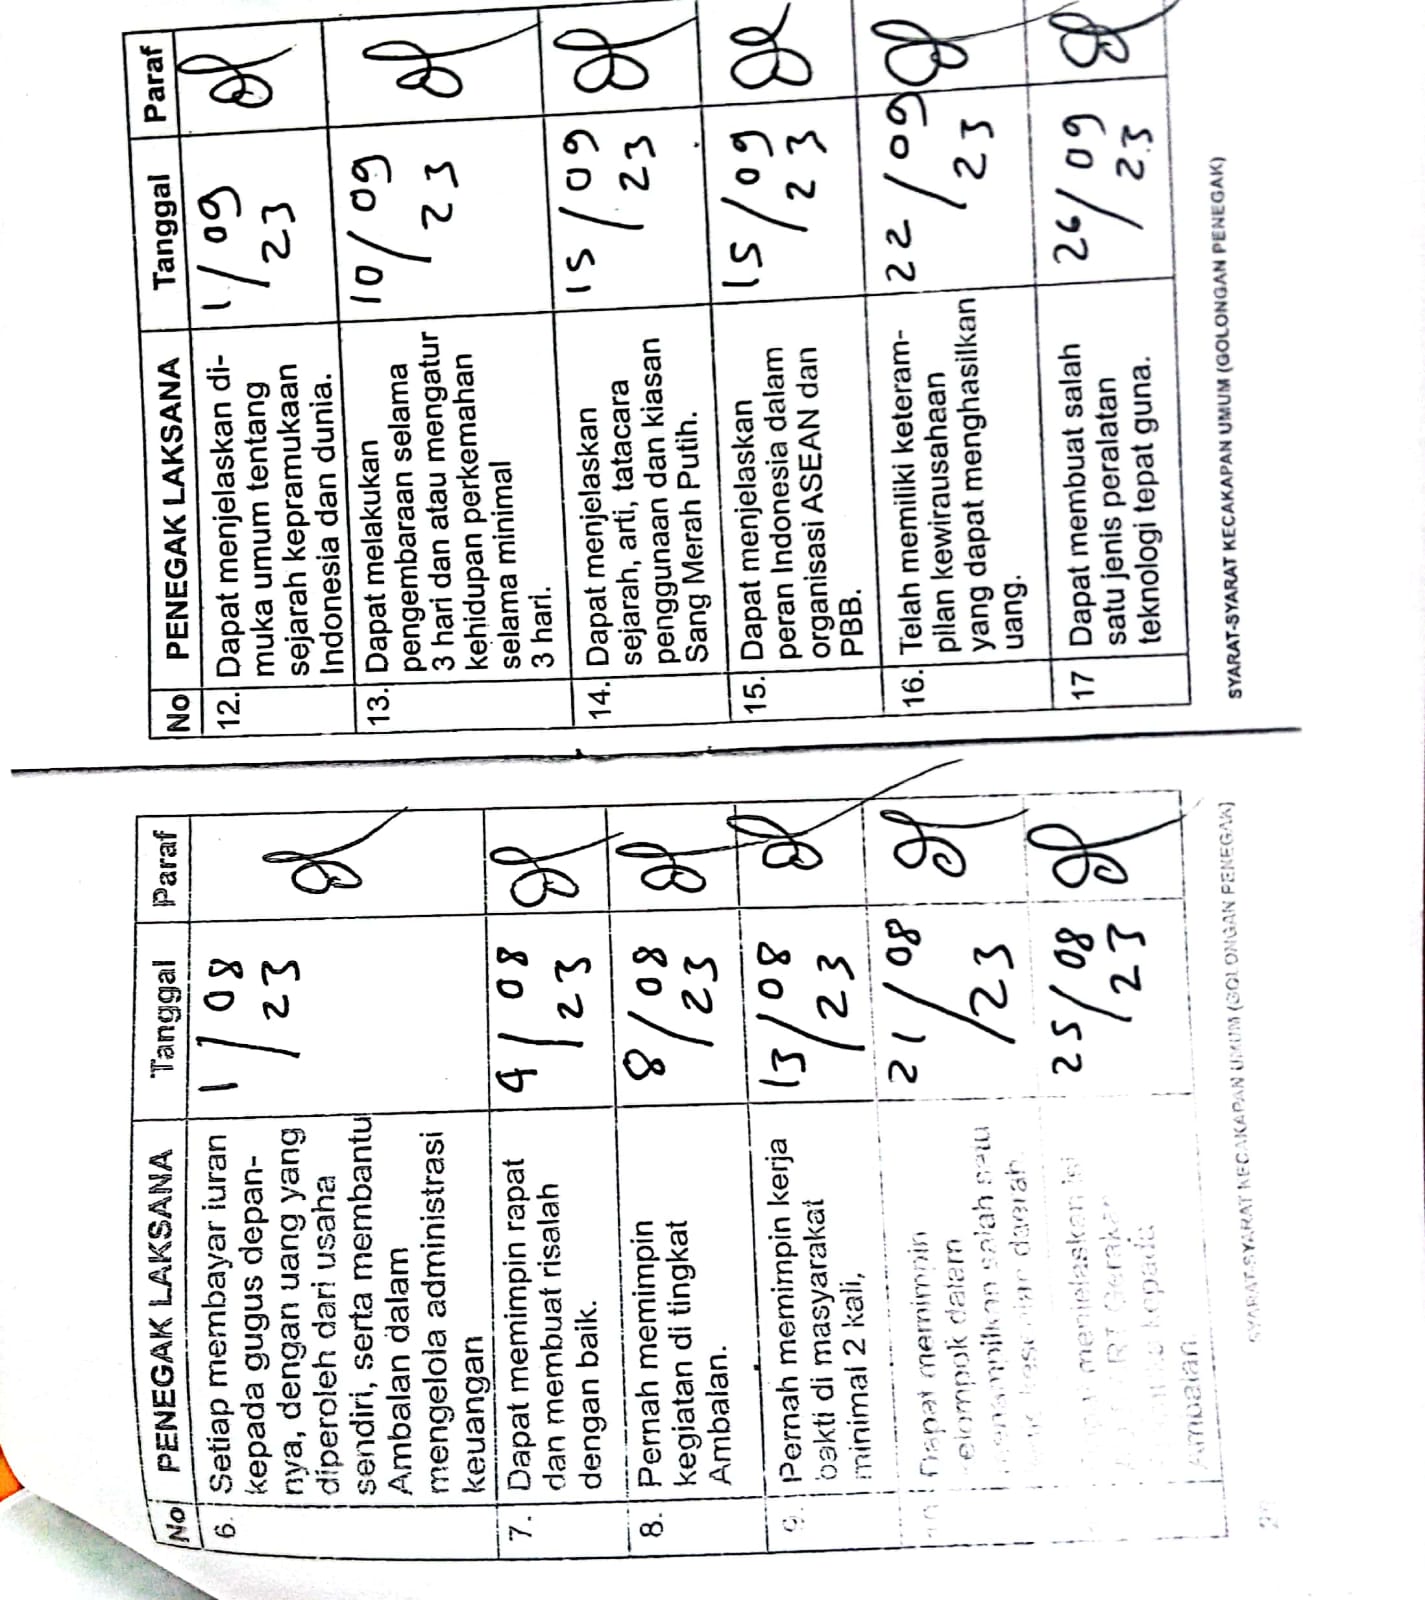 No PENEGAK LAKSANA Tanggal Paraf
6. Setiap membayar iuran 1 / 08
kepada gugus depan- 23
nya, dengan uang yang
diperoleh dari usaha
sendiri, serta membantu
Ambalan dalam
mengelola administrasi
keuangan
7. Dapat memimpin rapat 4 / 08
dan membuat risalah 23
dengan baik.
8. Pernah memimpin 8 / 08
kegiatan di tingkat 23
Ambalan.
9. Pernah memimpin kerja 13 / 08
bakti di masyarakat 23
minimal 2 kali,
Dapat memimpin 21 / 08
dalam 23
salah satu
daerah
menjelaskan isi 25 / 08
RT Gerakan 23
kepada
Ambalan
SYARAT-SYARAT KECAKAPAN UMUM (GOLONGAN PENEGAK)
No PENEGAK LAKSANA Tanggal Paraf
12. Dapat menjelaskan di- 1 / 09
muka umum tentang 23
sejarah kepramukaan
Indonesia dan dunia.
13. Dapat melakukan 10 / 09
pengembaraan selama 23
3 hari dan atau mengatur
kehidupan perkemahan
selama minimal
3 hari.
14. Dapat menjelaskan 15 / 09
sejarah, arti, tatacara 23
penggunaan dan kiasan
Sang Merah Putih.
15. Dapat menjelaskan 15 / 09
peran Indonesia dalam 23
organisasi ASEAN dan
PBB.
16. Telah memiliki keteram- 22 / 09
pilan kewirausahaan 23
yang dapat menghasilkan
uang.
17 Dapat membuat salah 26 / 09
satu jenis peralatan 23
teknologi tepat guna.
SYARAT-SYARAT KECAKAPAN UMUM (GOLONGAN PENEGAK)